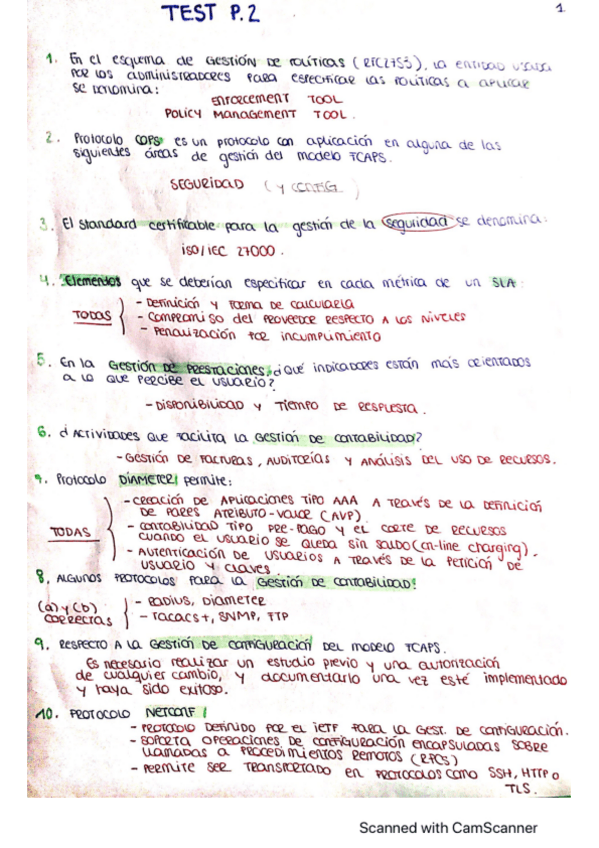 TEST P.2
1
1. En el esquema de GESTIÓN DE POLÍTICAS (RFC2753), la entidad usada
por los administradores para especificar las políticas a aplicar
se denomina:
ENFORCEMENT TOOL
POLICY MANAGEMENT TOOL.
2. Protocolo COPS es un protocolo con aplicación en alguna de las
siguientes áreas de gestión del modelo TCAPS.
SEGURIDAD (Y CONFIG)
3. El standard certificable para la gestión de la seguridad se denomina:
ISO/IEC 27000.
4. Elementos que se deberían especificar en cada métrica de un SLA:
TODAS
- Definición y forma de calcularla
- Compromiso del proveedor respecto a los niveles
- Penalización por incumplimiento
5. En la GESTIÓN DE PRESTACIONES, ¿Qué indicadores están más orientados
a lo que percibe el usuario?
- Disponibilidad y tiempo de respuesta.
6. ¿Actividades que facilita la GESTIÓN DE CONTABILIDAD?
- Gestión de facturas, auditorías y análisis del uso de recursos.
7. Protocolo DIAMETER, permite:
TODAS
- Creación de aplicaciones tipo AAA a través de la definición
de pares atributo-valor (AVP)
- Contabilidad tipo pre-pago y el corte de recursos
cuando el usuario se queda sin saldo (on-line charging).
- Autenticación de usuarios a través de la petición de
usuario y claves.
8. Algunos protocolos para la GESTIÓN DE CONTABILIDAD:
(a) y (b)
CORRECTAS
- Radius, Diameter
- Tacacs+, SNMP, FTP
9. Respecto a la GESTIÓN DE CONFIGURACIÓN del modelo TCAPS.
Es necesario realizar un estudio previo y una autorización
de cualquier cambio, y documentarlo una vez esté implementado
y haya sido exitoso.
10. Protocolo NETCONF:
- Protocolo definido por el IETF para la gest. de configuración.
- Soporta operaciones de configuración encapsuladas sobre
llamadas a procedimientos remotos (RPCs)
- Permite ser transportado en protocolos como SSH, HTTP o
TLS.
Scanned with CamScanner